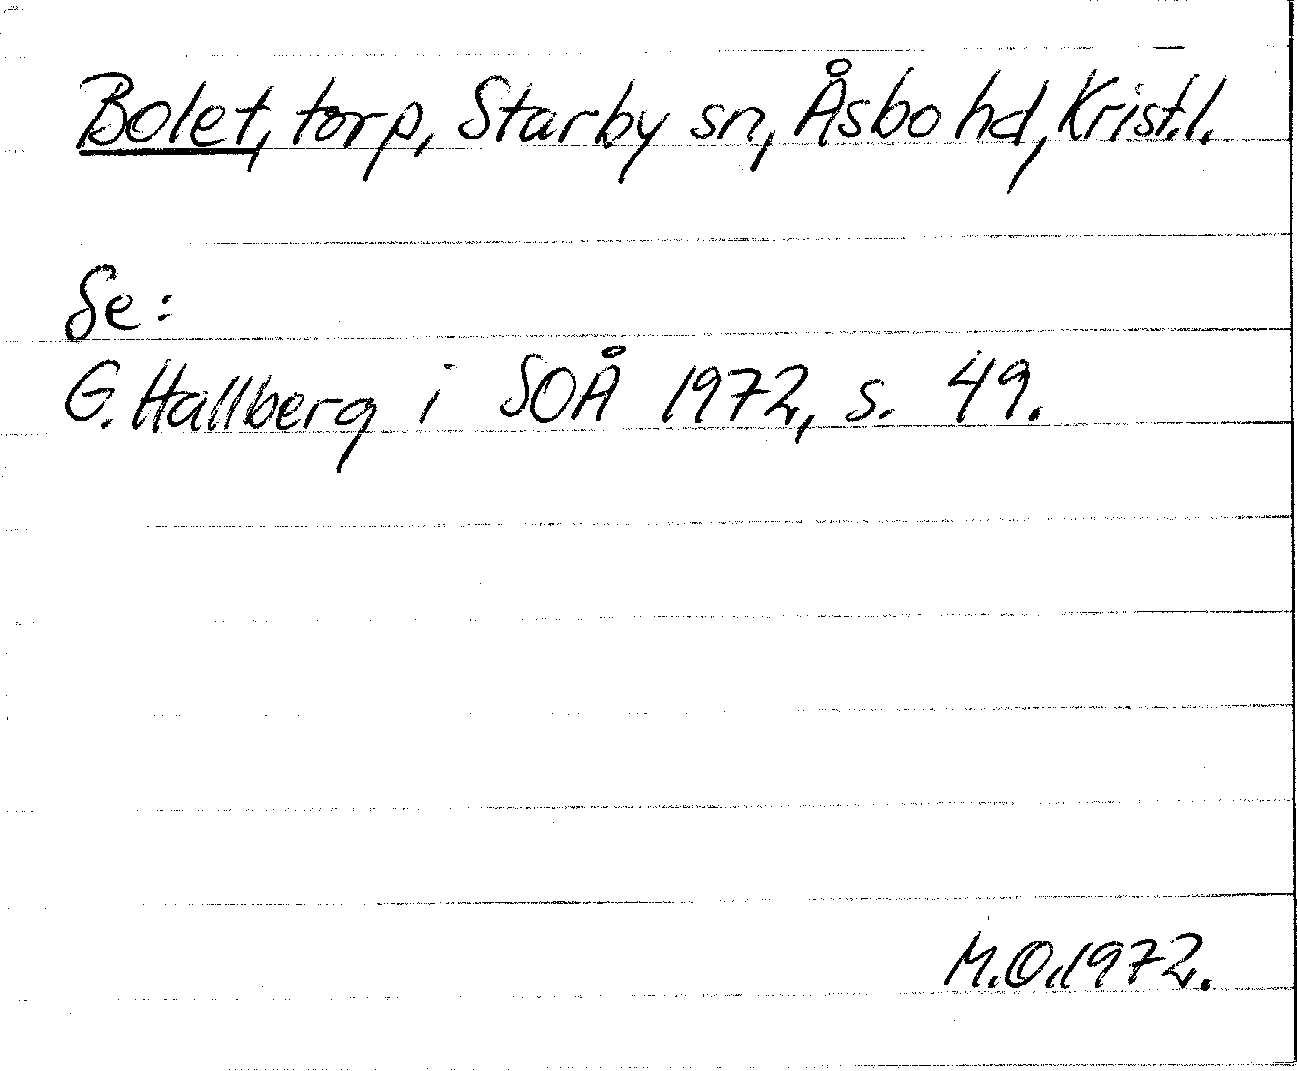 Bolet, torp, Starby sn, Åsbo hd, Krist.l.
Se:
G. Hallberg i SOÅ 1972, s. 49.
M.O. 1972.